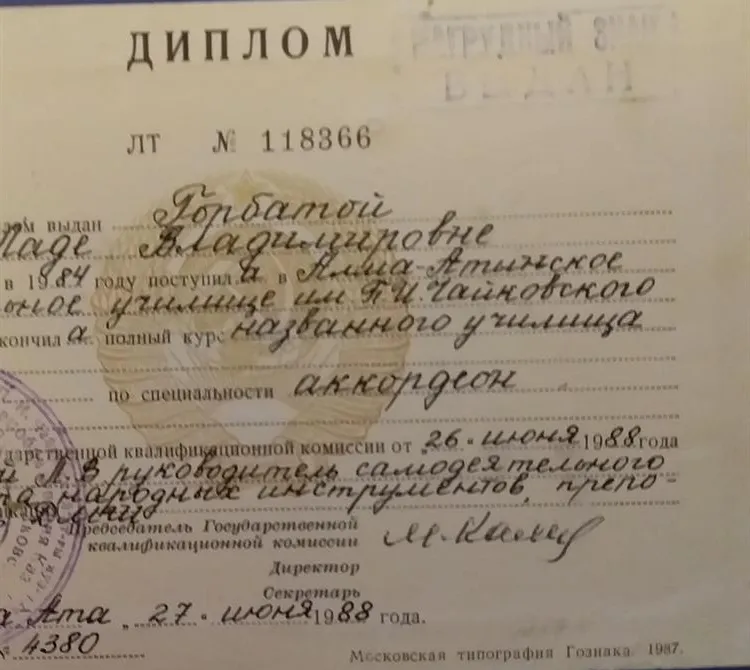 ДИПЛОМ
НАГРУДНЫЙ ЗНАК
ВЫДАН
ЛТ № 118366
выдан Горбатой
Ладе Владимировне
в 1984 году поступила в Алма-Атинское
училище им П.И.Чайковского
окончила полный курс названного училища
по специальности аккордеон
квалификационной комиссии от „26“ июня 1988 года
Л.В руководитель самодеятельного
народных инструментов, препо-
Председатель Государственной
квалификационной комиссии
Директор
Секретарь
Ата „27“ июня 1988 года.
№ 4380
Московская типография Гознака. 1987.